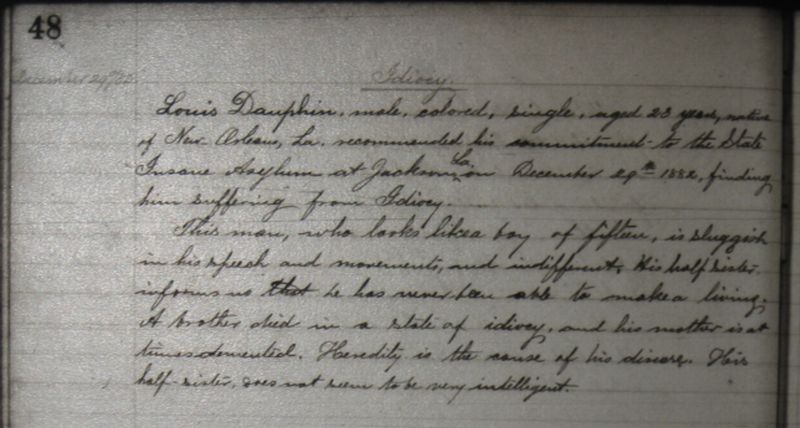 48
December 29th/82
Idiocy.
Louis Dauphin, male, colored, single, aged 23 years, native
of New Orleans, La. recommended his commitment to the State
Insane Asylum at Jackson, La. on December 29th 1882, finding
him suffering from Idiocy.
This man, who looks like a boy of fifteen, is sluggish
in his speech and movements, and indifferent. His half sister
informs us that he has never been able to make a living.
A brother died in a state of idiocy, and his mother is at
times demented. Heredity is the cause of his disease. His
half-sister, does not seem to be very intelligent.